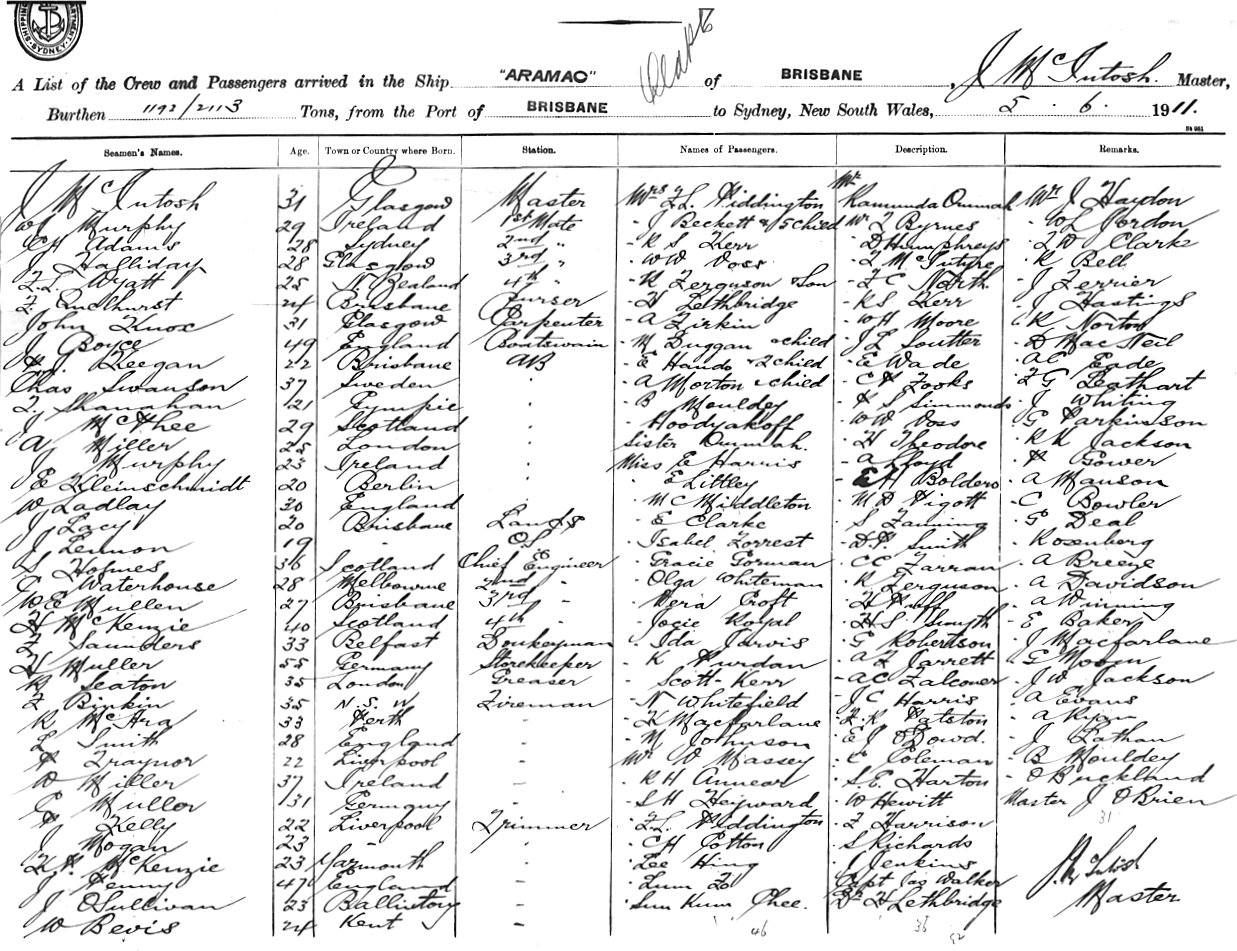 SHIPPING DEPARTMENT SYDNEY
A List of the Crew and Passengers arrived in the Ship "ARAMAC" of BRISBANE, J McIntosh Master,
Burthen 1192/2113 Tons, from the Port of BRISBANE to Sydney, New South Wales, 5.6. 1911.
Seamen's Names. Age. Town or Country where Born. Station. Names of Passengers. Description. Remarks.
J McIntosh 31 Glasgow Master Mrs F.L. Piddington Mr Ramunda Mr J Haydon
W Murphy 29 Ireland 1st Mate - J Beckett & 5 child Mr F Byrnes - W L Vordon
Adams 28 Sydney 2nd " - R S Kerr - D Humphreys - F W Clarke
J Halliday 28 Glasgow 3rd " - W W Voss - F McIntyre - R Bell
F.L. Wyatt 25 N. Zealand 4th " - R Ferguson & Son - F C North - J Ferrier
F 24 Brisbane Purser - H Lethbridge - R S Kerr - J Hastings
John Knox 31 Glasgow Carpenter - A Firkin - W H Moore - R Norton
J Boyce 49 England Boatswain - M Duggan & child - J L Soutter - D MacNeil
Keegan 22 Brisbane AB - E Hando & 2 child - E Wade - A C Eade
Chas Swanson 37 Sweden - A Morton & child - C H Fooks - F G Leathart
T. Shanahan 21 Gympie - B Mouldey - P S Simmonds - J Whiting
J McPhee 29 Scotland - Hoodyakoff - W W Voss - G Parkinson
A Miller 25 London Sister - H Theodore - R R Jackson
J Murphy 23 Ireland Miss E Harris - A Lloyd - P Gower
E Kleinschmidt 20 Berlin - E Littley - E H Boldero - A Manson
W Ladlay 30 England - M C Middleton - M D Pigott - C Bowler
J Lacy 20 Brisbane Lamps - E Clarke - S Fanning - G Deal
J Lennon 19 O.S. - Isabel Forrest - D P Smith - Rosenberg
S Holmes 36 Scotland Chief Engineer - Gracie Gorman - C C Farran - A Breeze
G Waterhouse 28 Melbourne 2nd " - Olga Whiteman - R Ferguson - A Davidson
W E Mullen 27 Brisbane 3rd " - Vera Croft - H Huff - A Winning
H McKenzie 40 Scotland 4th " - Josie Royal - H S Smyth - E Baker
F Saunders 33 Belfast Donkeyman - Ida Jarvis - G Robertson - J Macfarlane
H Muller 55 Germany Storekeeper - K Purdan - A F Jarrett - G Moon
R Seaton 35 London Greaser - Scott-Kerr - A C Falconer - J W Jackson
F Binkin 35 N.S.W Fireman - N Whitefield - J C Harris - A Evans
R McHra 33 Perth - - H Macfarlane - F.R Patston - A Ryan
L Smith 28 England - - M Johnson - E J O'Dowd. - J Lathan
P Traynor 22 Liverpool - Mr W Massey - C Coleman - B Mouldey
W Miller 37 Ireland - - R H Annear - S.E. Harton - O Buckland
G Muller 31 Germany - - S H Heyward - W Hewitt Master J O'Brien
P Kelly 22 Liverpool Trimmer - F.L. Piddington - F Harrison 31
J Mogan 23 " - C H Cotton - S Richards
McKenzie 23 Yarmouth - - Lee Hing - J Jenkins J McIntosh
J Penny 47 England - - Lum Capt Jas Walker Master
J O'Sullivan 23 Ballintory - - Sun Kum Chee. Dr H Lethbridge
W Bevis 24 Kent - 46 36 92